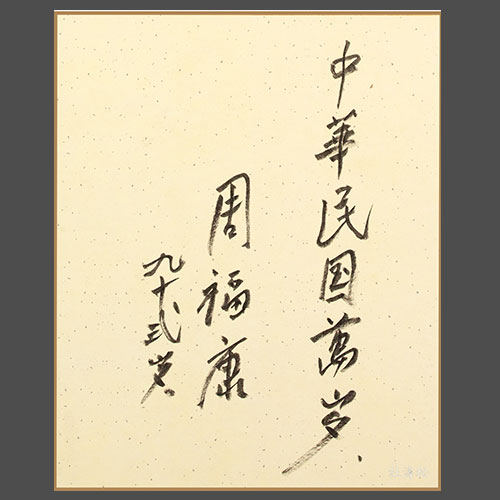 中華民国萬岁、
周福康
九十弎岁